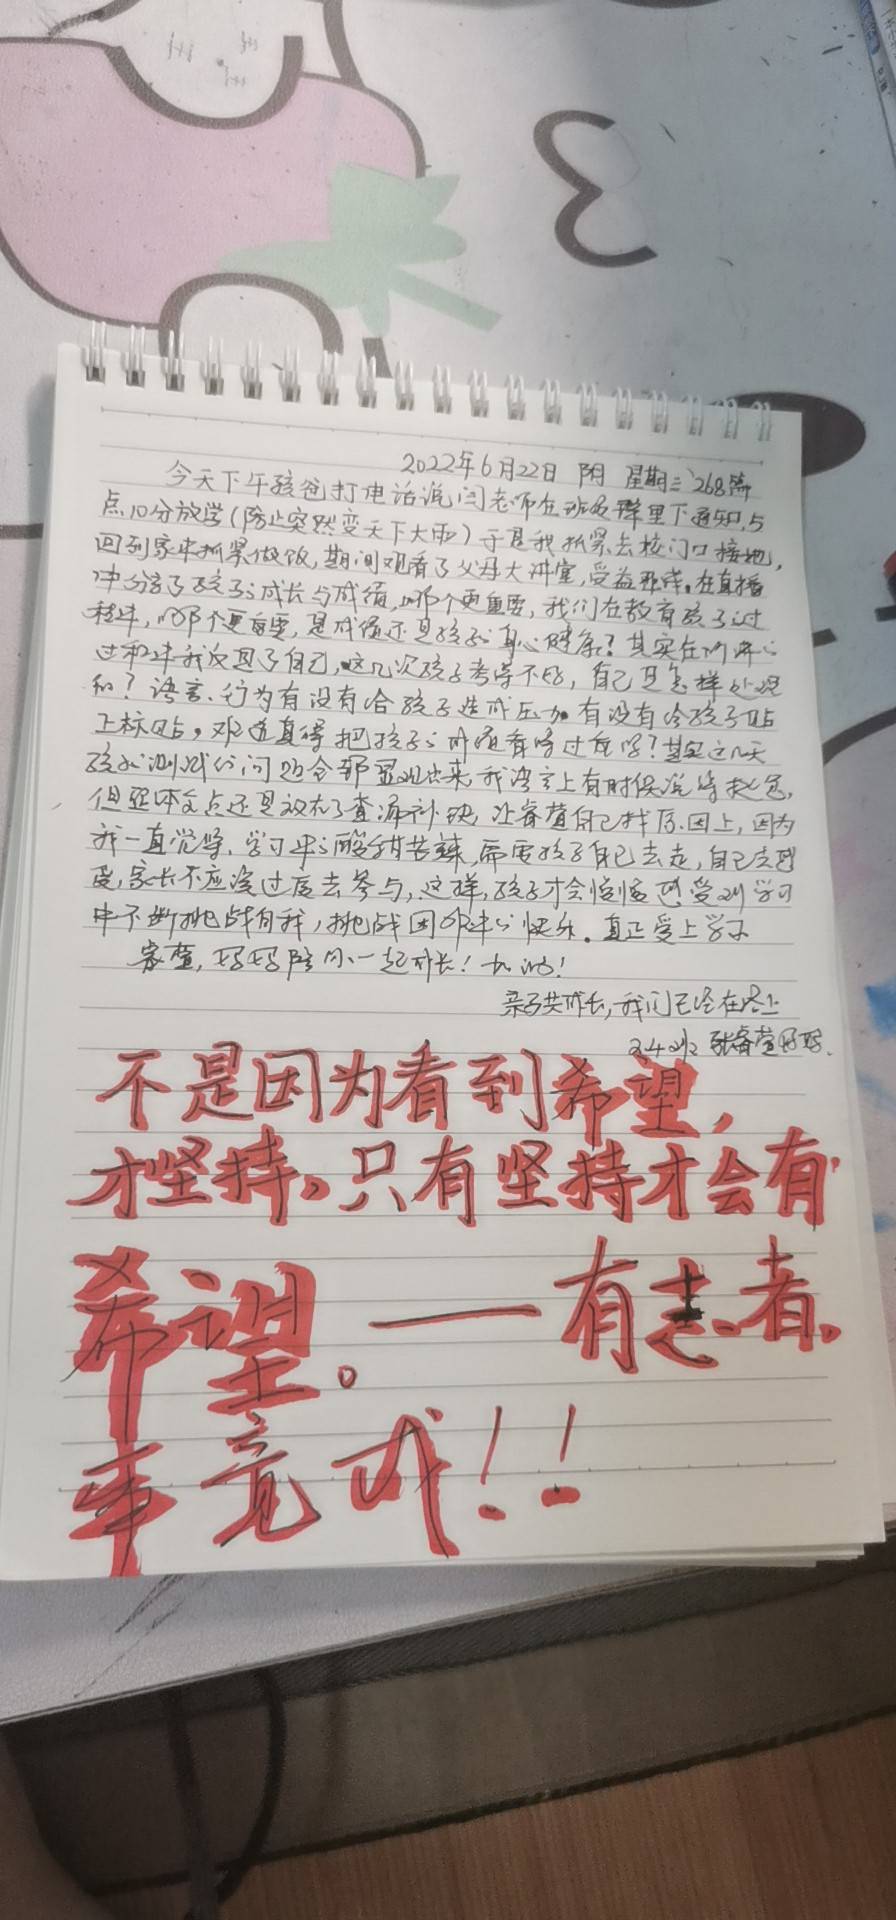 2022年6月22日 阴 星期三 268篇
今天下午孩爸打电话说闫老师在班级群里下通知,5
点10分放学(防止突然变天下大雨)于是我抓紧去校门口接她,
回到家中抓紧做饭,期间观看了父母大讲堂,受益匪浅。在直播
中分享了孩子的成长与成绩,哪个更重要,我们在教育孩子的过
程中,哪个更重要,是成绩还是孩子的身心健康?其实在听课的
过程中我反思了自己,这几次孩子考得不好,自己是怎样处理
的?语言、行为有没有给孩子造成压力。有没有给孩子贴
上标贴。难道真得把孩子的成绩看得过重吗?其实这几天
孩子的测试的问题会都显现出来,我语言上有时候说得较急,
但重点还是放在了查漏补缺,让睿萱自己找原因上,因为
我一直觉得,学习中的酸甜苦辣,需要孩子自己去走,自己去感
受,家长不应该过度去参与,这样,孩子才会慢慢感受到学习
中不断挑战自我,挑战困难中的快乐。真正爱上学习
睿萱,妈妈陪你一起成长!加油!
亲子共成长,我们已经在路上
2.4班 张睿萱妈妈.
不是因为看到希望,
才坚持。只有坚持才会有
希望。——有志者,
事竟成!!
3